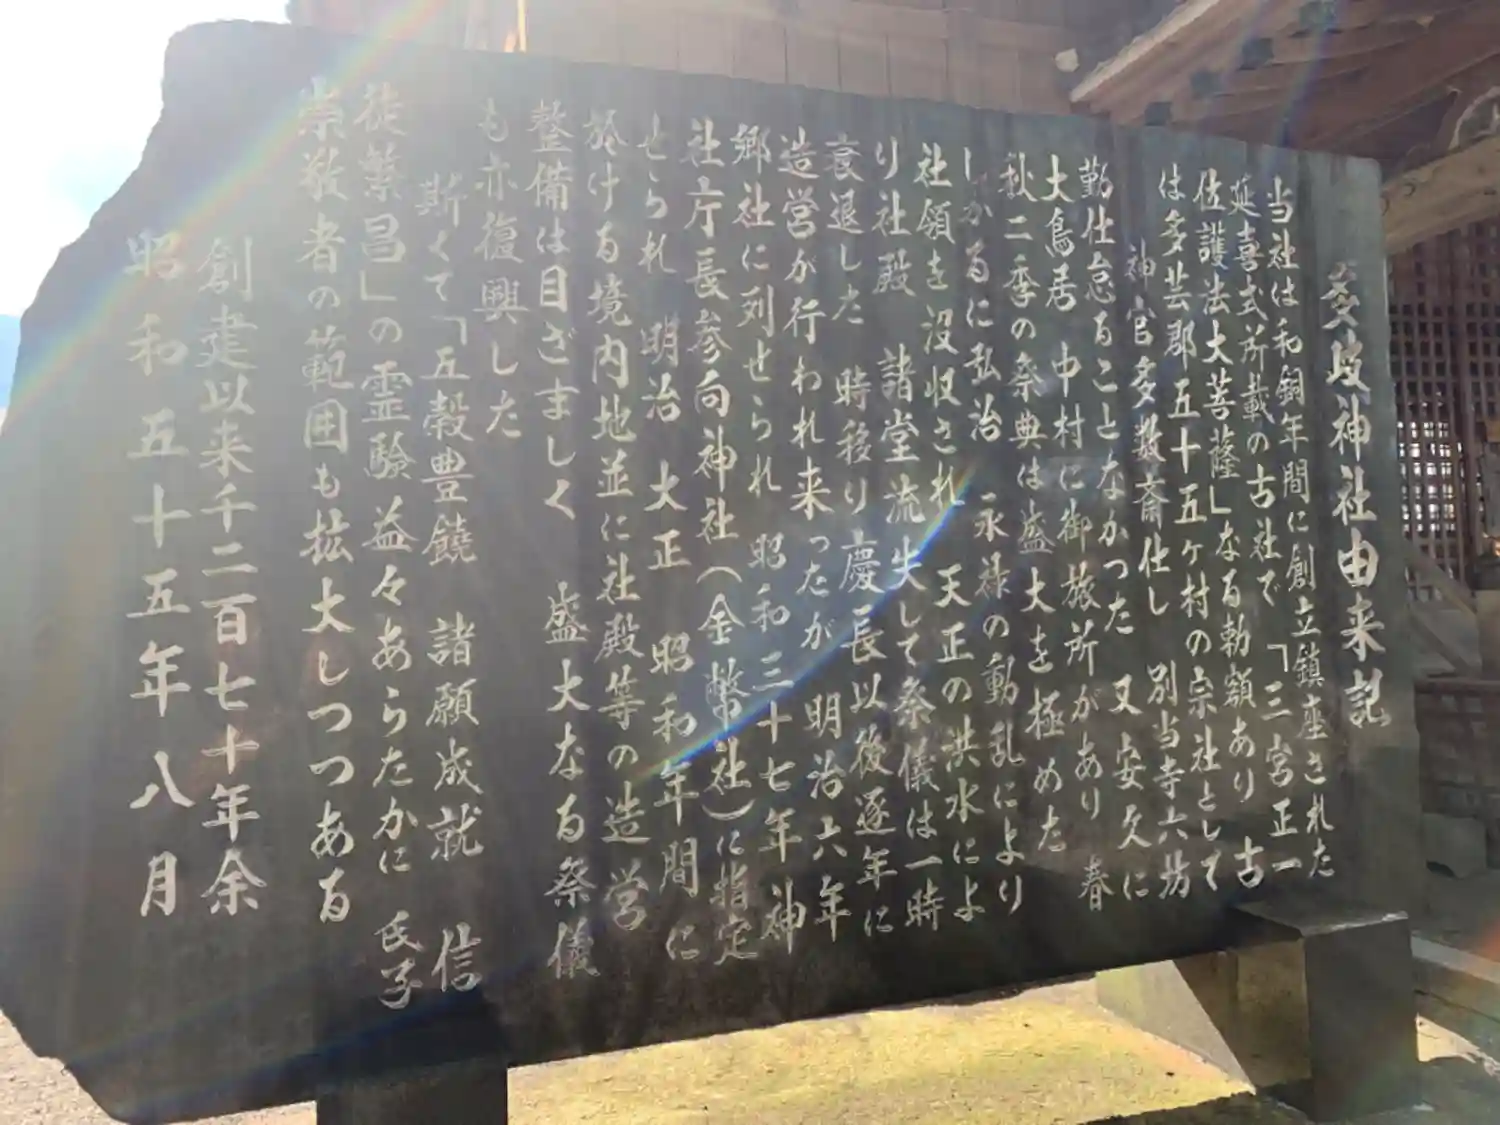 多岐神社由来記
当社は和銅年間に創立鎮座された
延喜式所載の古社で「三宮正一
佐護法大菩薩」なる勅額あり 古
は多芸郡五十五ヶ村の宗社として
神官多数斎仕し 別当寺六坊
勤仕怠ることなかった 又安久に
大鳥居 中村に御旅所があり 春
秋二季の祭典は盛大を極めた
しかるに弘治 永禄の動乱により
社領を没収され 天正の洪水によ
り社殿 諸堂流失して祭儀は一時
衰退した 時移り慶長以後逐年に
造営が行われ来ったが 明治六年
郷社に列せられ 昭和三十七年神
社庁長参向神社(金幣社)に指定
せられ 明治 大正 昭和年間に
於ける境内地並に社殿等の造営
整備は目ざましく 盛大なる祭儀
も亦復興した
斯くて「五穀豊饒 諸願成就 信
徒繁昌」の霊験益々あらたかに 氏子
崇敬者の範囲も拡大しつつある
創建以来千二百七十年余
昭和五十五年八月